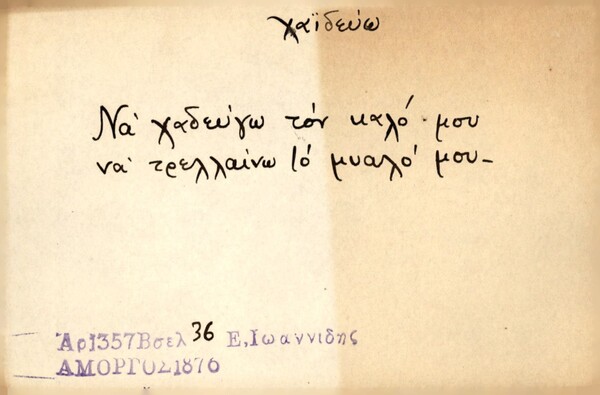 χαϊδεύω
Νά χαδεύγω τόν καλό μου
νά τρελλαίνω τό μυαλό μου_
Ἀρ1357Βσελ 36 Ε,Ιωαννιδης
ΑΜΟΡΓΟΣ1876